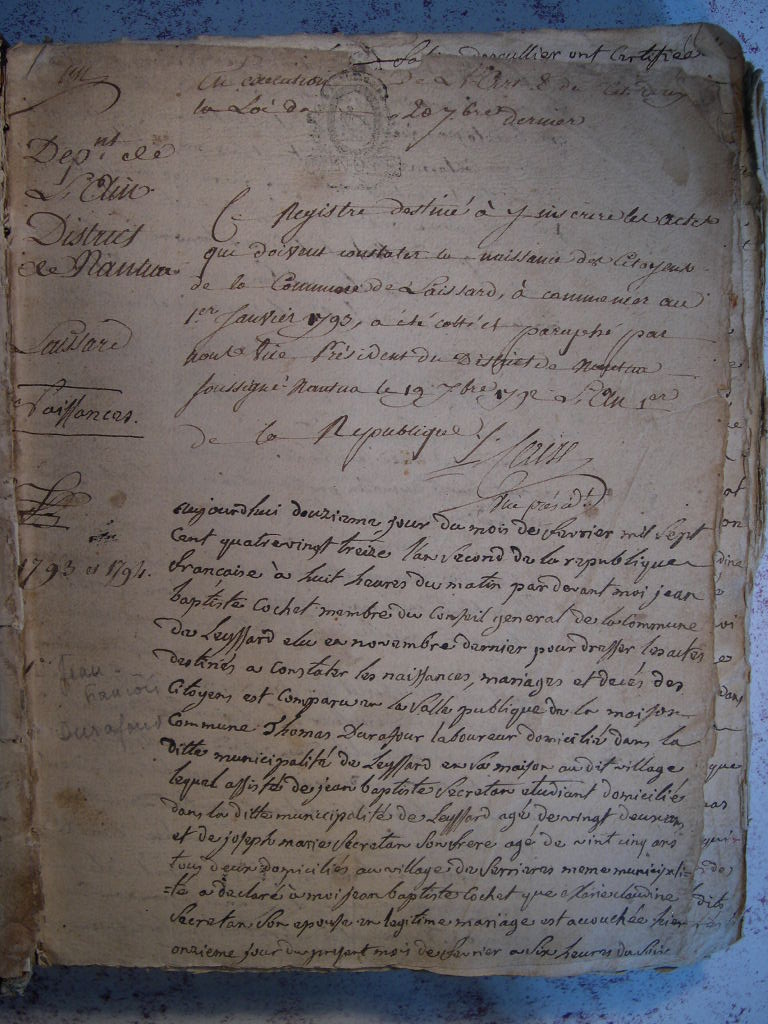 ont Certifiée
En execution de L'Art 8 du
la Loi du 20 7bre dernier
Depnt de
L'Ain
District
de Nantua
Laissard
Naissances.
1793 et 1794.
Jean
François
Durafour
Ce Registre destiné à y inscrire les actes
qui doivent constater la naissance des Citoyens
de la Commune de Laissard, à commencer au
1er Janvier 1793, a été cotté et paraphé par
nous Vice Président du District de Nantua
soussigné. Nantua le 19 Xbre 1792 L'An 1er
de la Republique
Vice présidt
aujourdhui douzieme jour du mois de fevrier mil sept
Cent quatrevingt treize l'an second de la republique
francaise à huit heures du matin par devant moi jean
baptiste Cochet membre du Conseil general de la Commune
de Leyssard elu en novembre dernier pour dresser les actes
destinés a Constater les naissances, mariages et decés des
Citoyens est Comparu en la salle publique de la maison
Commune Thomas Durafour laboureur domicilié dans la
ditte municipalité de Leyssard en sa maison au dit village
lequel assisté de jean baptiste Secretan etudiant domicilié
dans la ditte municipalité de Leyssard agé de vingt deux ans
et de joseph marie Secretan Son frere agé de vint cinq ans
tous deux domiciliés au village de Serrieres meme municipali-
=té a declaré à moi jean baptiste Cochet que Marie claudine
Secretan Son epouse en legitime mariage est acouchée hier
onzieme jour du present mois de fevrier a Six heures du Soir